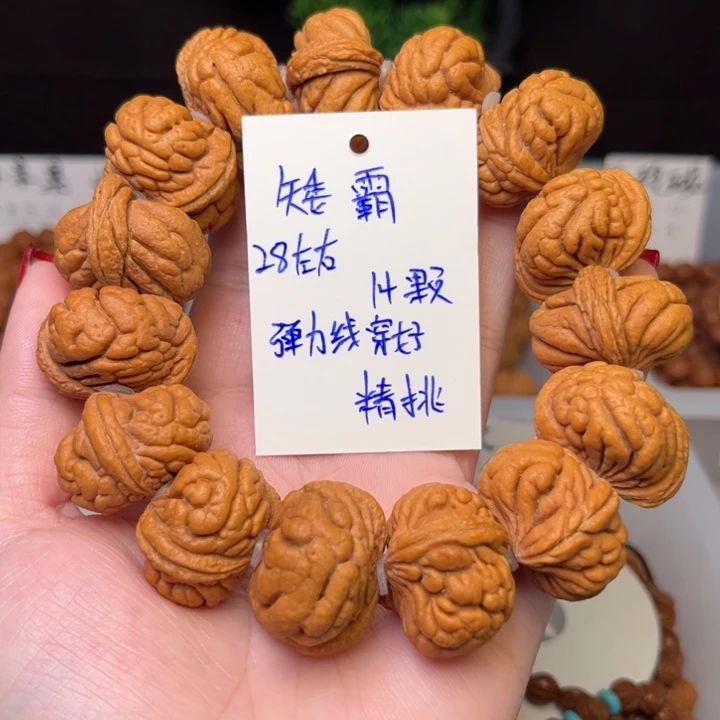 矮霸
28左右
14颗
弹力线穿好
精挑